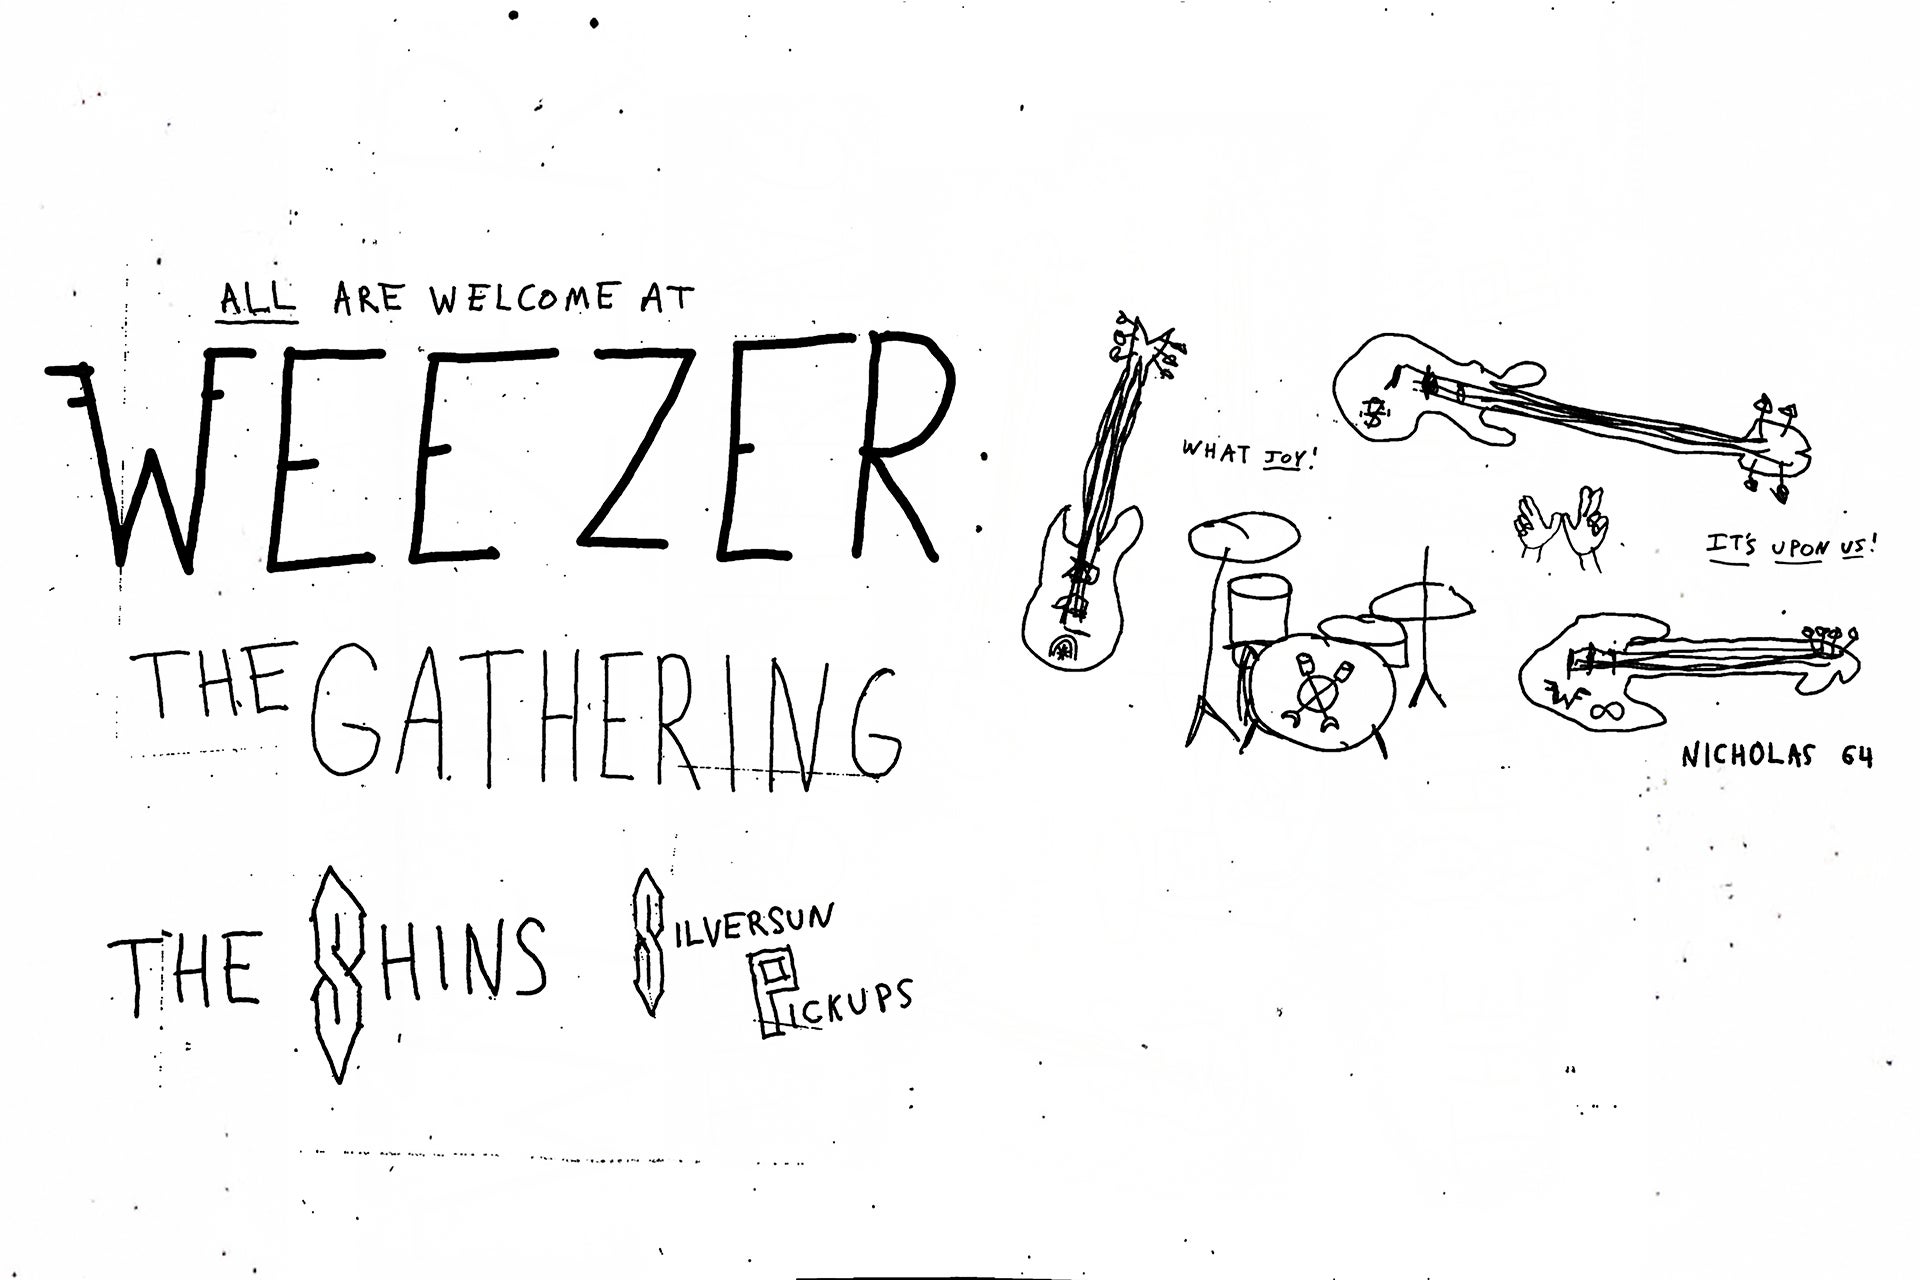 ALL ARE WELCOME AT
WEEZER
THE GATHERING
THE SHINS
SILVERSUN
PICKUPS
WHAT JOY!
IT'S UPON US!
NICHOLAS 64